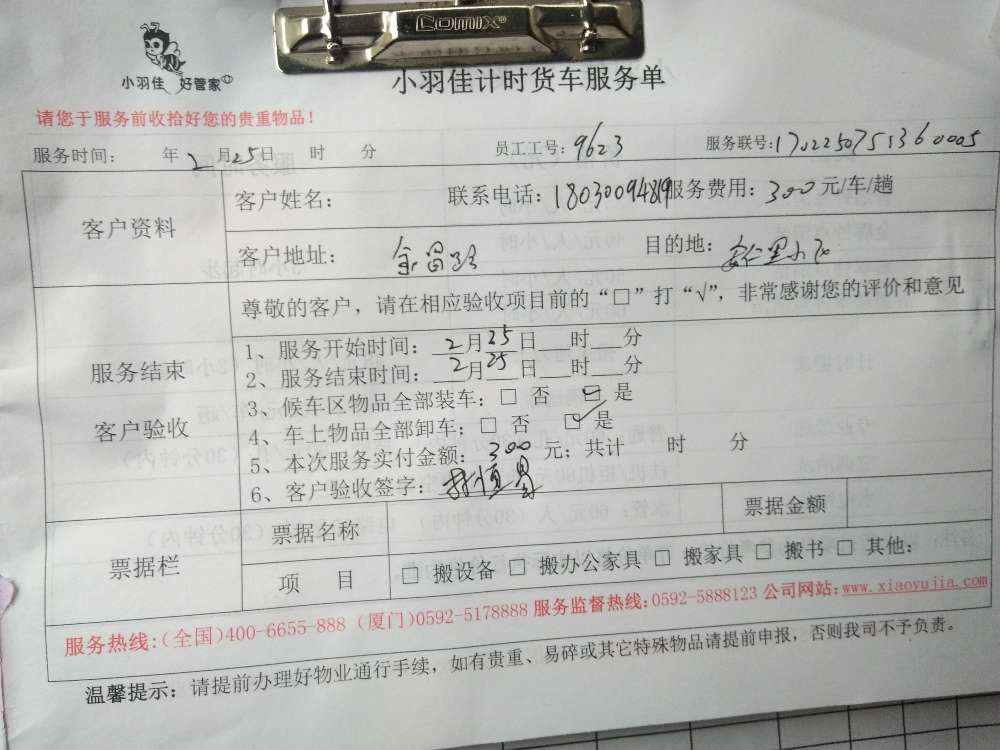 Comix®
小羽佳 好管家
小羽佳计时货车服务单
请您于服务前收拾好您的贵重物品！
服务时间： 年 2月25日 时 分 员工工号：9623 服务联号：170225075136 0005
客户资料 客户姓名： 联系电话：18030094819 服务费用：300元/车/趟
客户地址：金昌路 目的地：
尊敬的客户，请在相应验收项目前的“□”打“√”，非常感谢您的评价和意见
服务结束
客户验收
1、服务开始时间：2月25日 时 分
2、服务结束时间：2月25日 时 分
3、候车区物品全部装车：□ 否 ☑ 是
4、车上物品全部卸车：□ 否 ☑ 是
5、本次服务实付金额：300 元；共计 时 分
6、客户验收签字：
票据栏 票据名称 票据金额
项 目 □ 搬设备 □ 搬办公家具 □ 搬家具 □ 搬书 □ 其他：
服务热线：（全国）400-6655-888（厦门）0592-5178888 服务监督热线：0592-5888123 公司网站：www.xiaoyujia.com
温馨提示：请提前办理好物业通行手续，如有贵重、易碎或其它特殊物品请提前申报，否则我司不予负责。